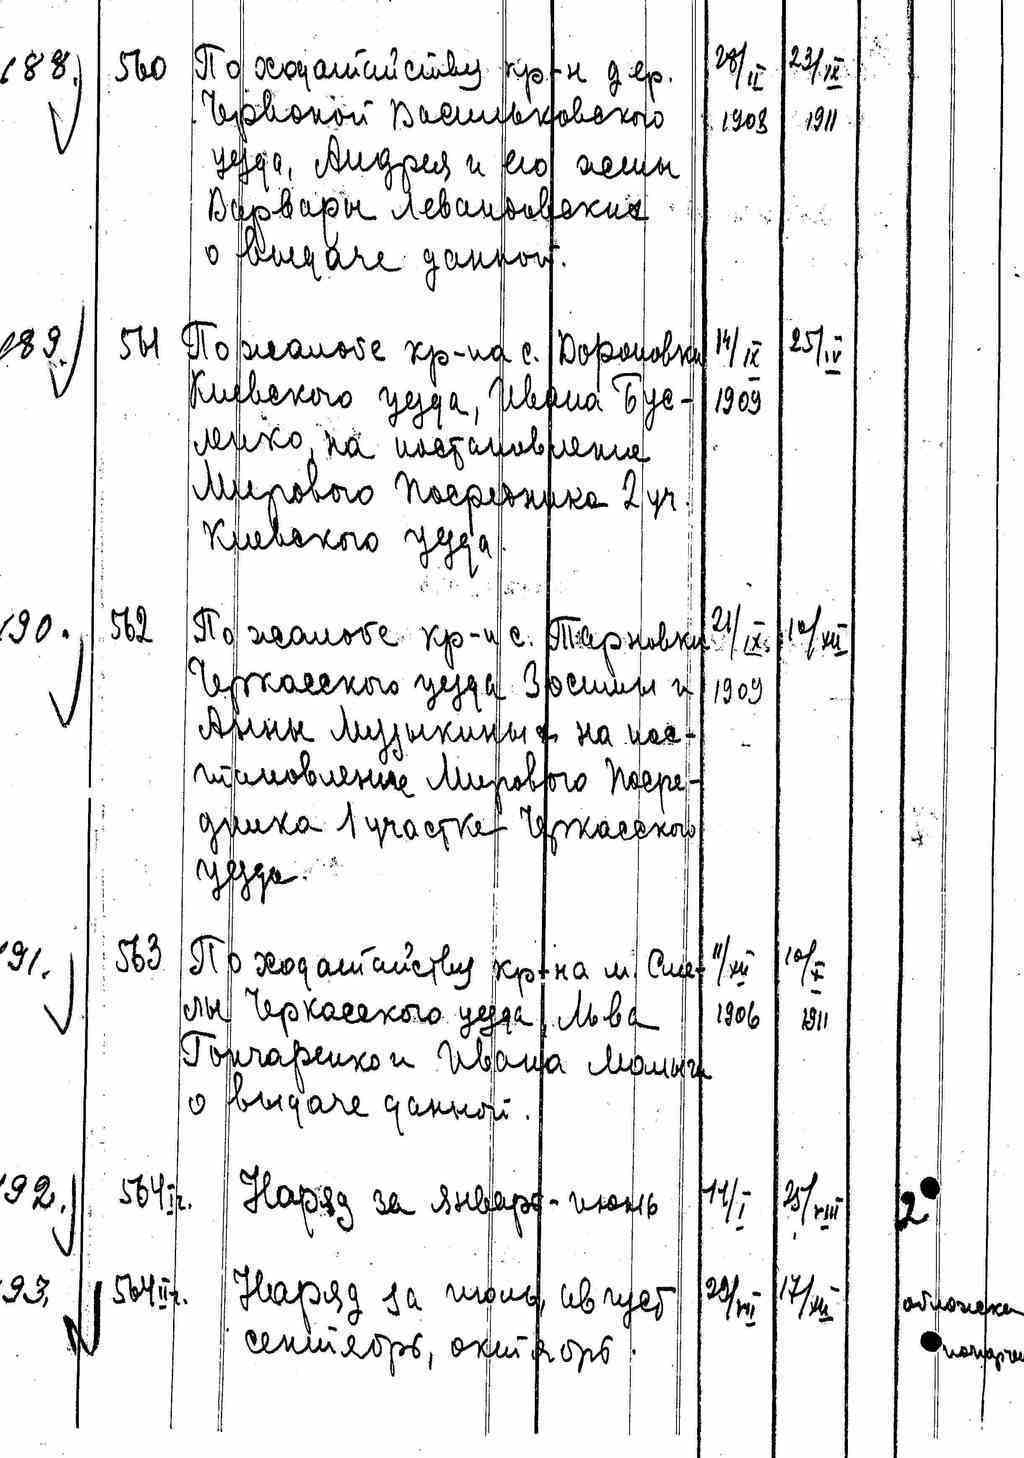 188. 560 По ходатайству кр-н дер. 28/II 23/IX
Червоной Васильковского 1908 1911
уезда, Андрея и его жены
Варвары Левандовских
о выдаче данной.
189. 561 По жалобе кр-на с. Дороповки 14/IX 25/IV
Киевского уезда, Ивана Бус- 1909
ленко, на постановление
Мирового Посредника 2 уч.
Киевского уезда.
190. 562 По жалобе кр-н с. Тарновки 21/IX 10/XII
Черкасского уезда Зосимы и 1909
Анны Музыкиных на пос-
тановление Мирового Посре-
дника 1 участка Черкасского
уезда.
191. 563 По ходатайству кр-на м. Сме- 11/XII 10/X
лы Черкасского уезда, Льва 1906 1911
Гончаренко и Ивана
о выдаче данной.
192. 564 Iч. Наряд за январь-июнь 14/I 25/VIII 2
193. 564 IIч. Наряд за июль, август 29/VII 17/XII обложка
сентябрь, октябрь.